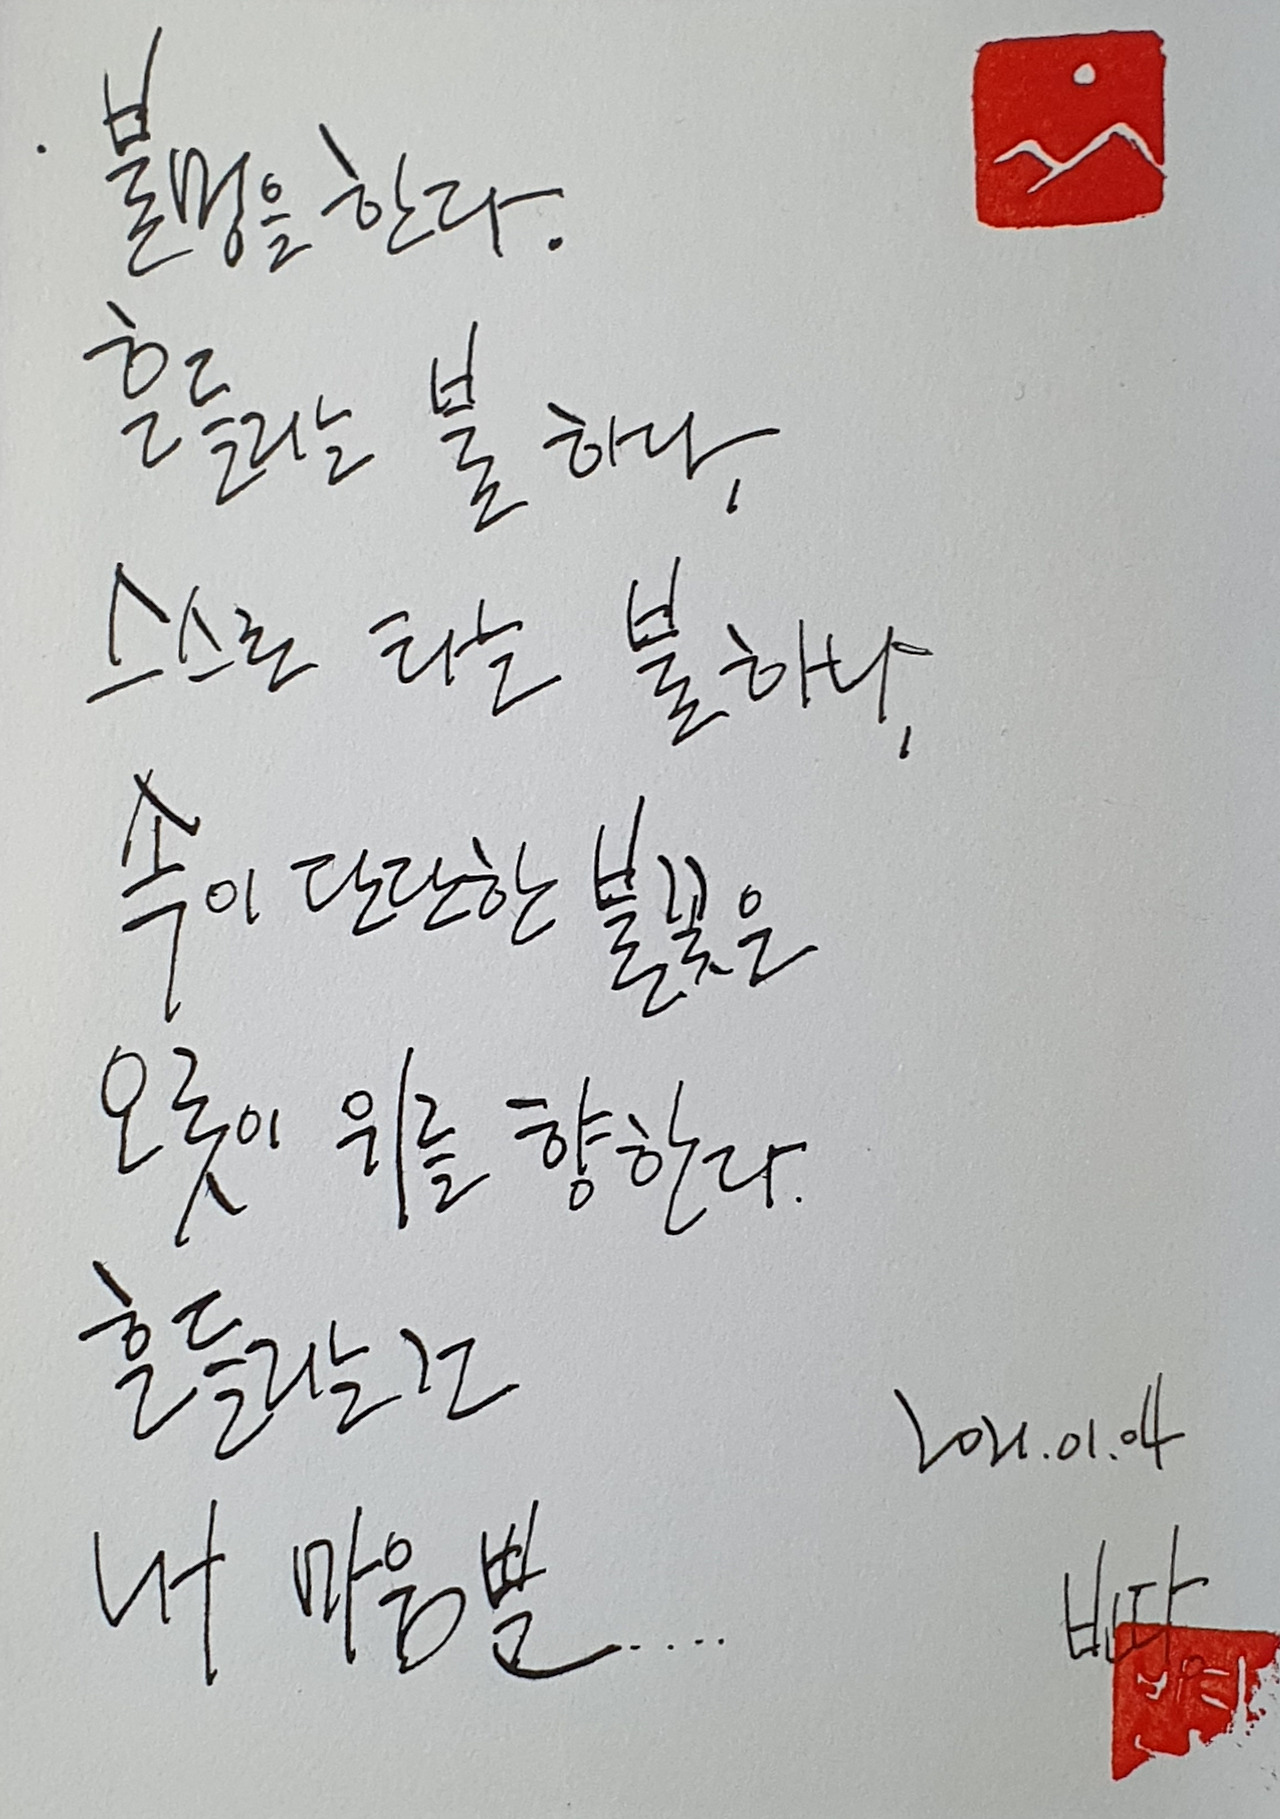 불멍을 한다.
흔들리는 불 하나,
스스로 타는 불 하나,
속이 단단한 불꽃은
오롯이 위를 향한다.
흔들리는 건
내 마음뿐.....
2021.01.04